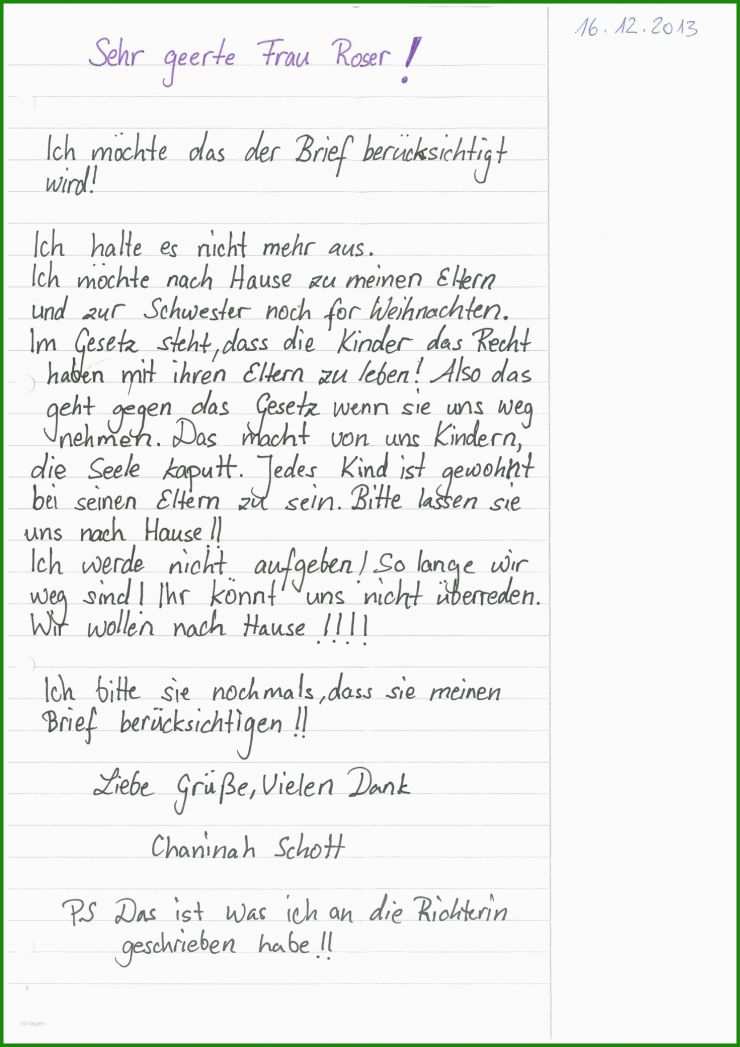 16.12.2013
Sehr geerte Frau Roser!
Ich möchte das der Brief berücksichtigt
wird!
Ich halte es nicht mehr aus.
Ich möchte nach Hause zu meinen Eltern
und zur Schwester noch for Weihnachten.
Im Gesetz steht, dass die Kinder das Recht
haben mit ihren Eltern zu leben! Also das
geht gegen das Gesetz wenn sie uns weg
nehmen. Das macht von uns Kindern,
die Seele kaputt. Jedes Kind ist gewohnt
bei seinen Eltern zu sein. Bitte lassen sie
uns nach Hause!!
Ich werde nicht aufgeben! So lange wir
weg sind! Ihr könnt uns nicht überreden.
Wir wollen nach Hause!!!!
Ich bitte sie nochmals, dass sie meinen
Brief berücksichtigen!!
Liebe Grüße, Vielen Dank
Chaninah Schott
PS Das ist was ich an die Richterin
geschrieben habe!!